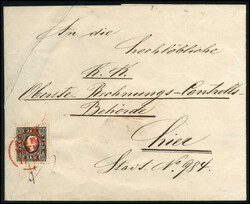 An die
hochlöbliche
K. K.
Oberste-Rechnungs-Controlls
Behörde
hier
Stadt No. 984.